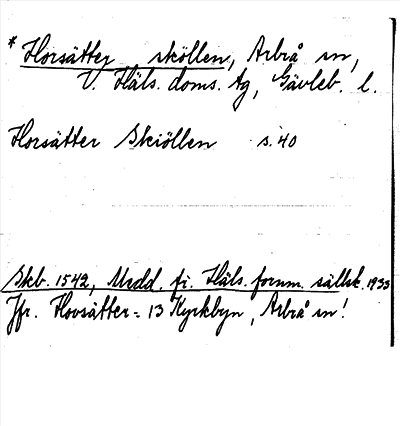 * Horsätter sköllen, Arbrå sn,
V. Häls. doms. tg, Gävleb. l.
Horsätter Skiöllen s. 40
Skb. 1542, Medd. fr. Häls. fornm. sällsk. 1933
Jfr. Hovsätter = 13 Kyrkbyn, Arbrå sn!